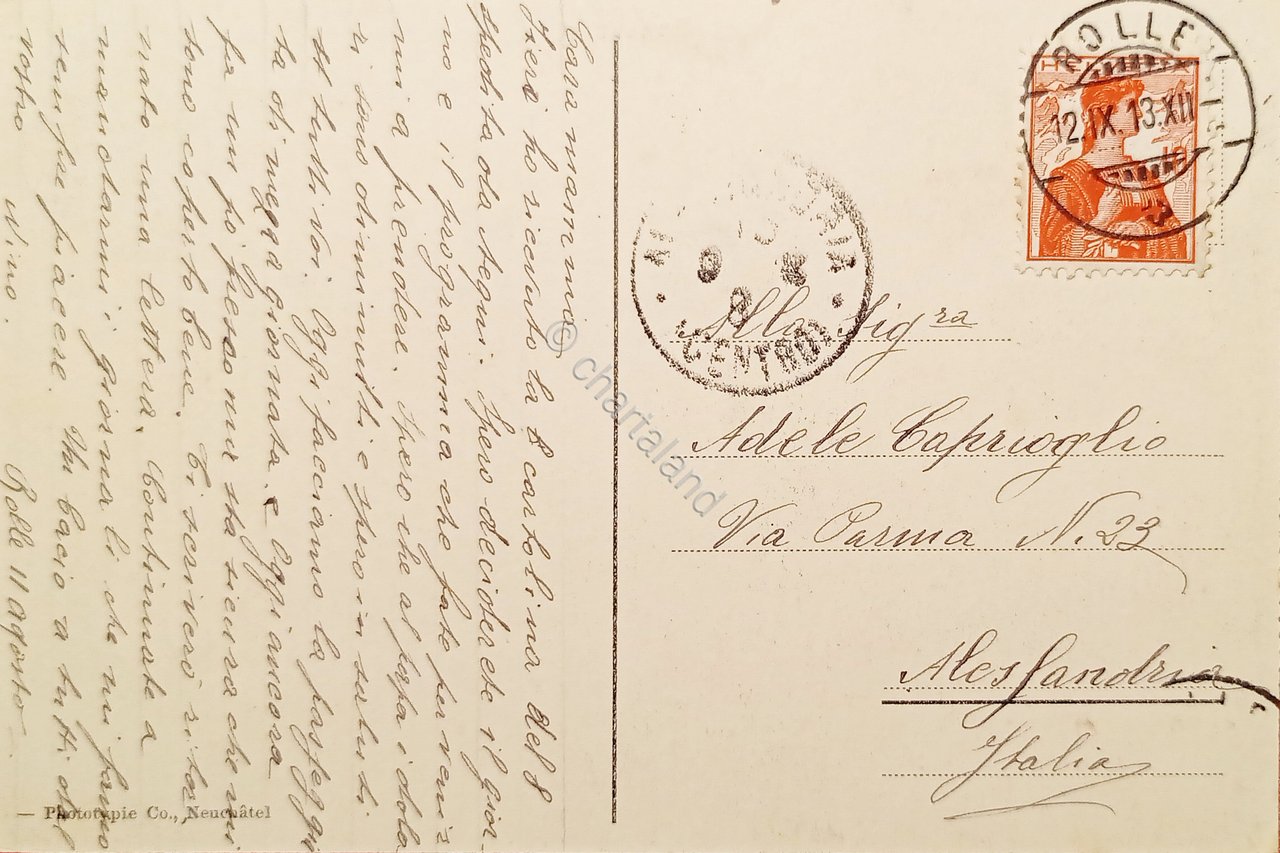 Cara mamma
Jiera ho ricevuto la cartolina del 8
spedita da tegui. Spero deciderete il gior-
no e il programma che fate per venir-
mi a prendere. Spero che al papà i dolo
ri sono diminuiti e spero in saluti
di tutti voi. Oggi facciamo la passeggia
ta di mezza giornata. e Oggi ancora
fa un po' fresco ma sta sicura che mi
sono coperto bene. Ti scriverò
nato una lettera. Continuate a
mandarmi i giornali che mi fanno
sempre piacere. Un bacio a tutti dal
vostro Nino. Rolle 11 agosto
— Phototypie Co., Neuchâtel
ROLLE
12.IX.13.XII
HELVETIA
10
CENTRO
Alla Sigra
Adele Caprioglio
Via Parma N. 23
Alessandria
Italia
© chartaland